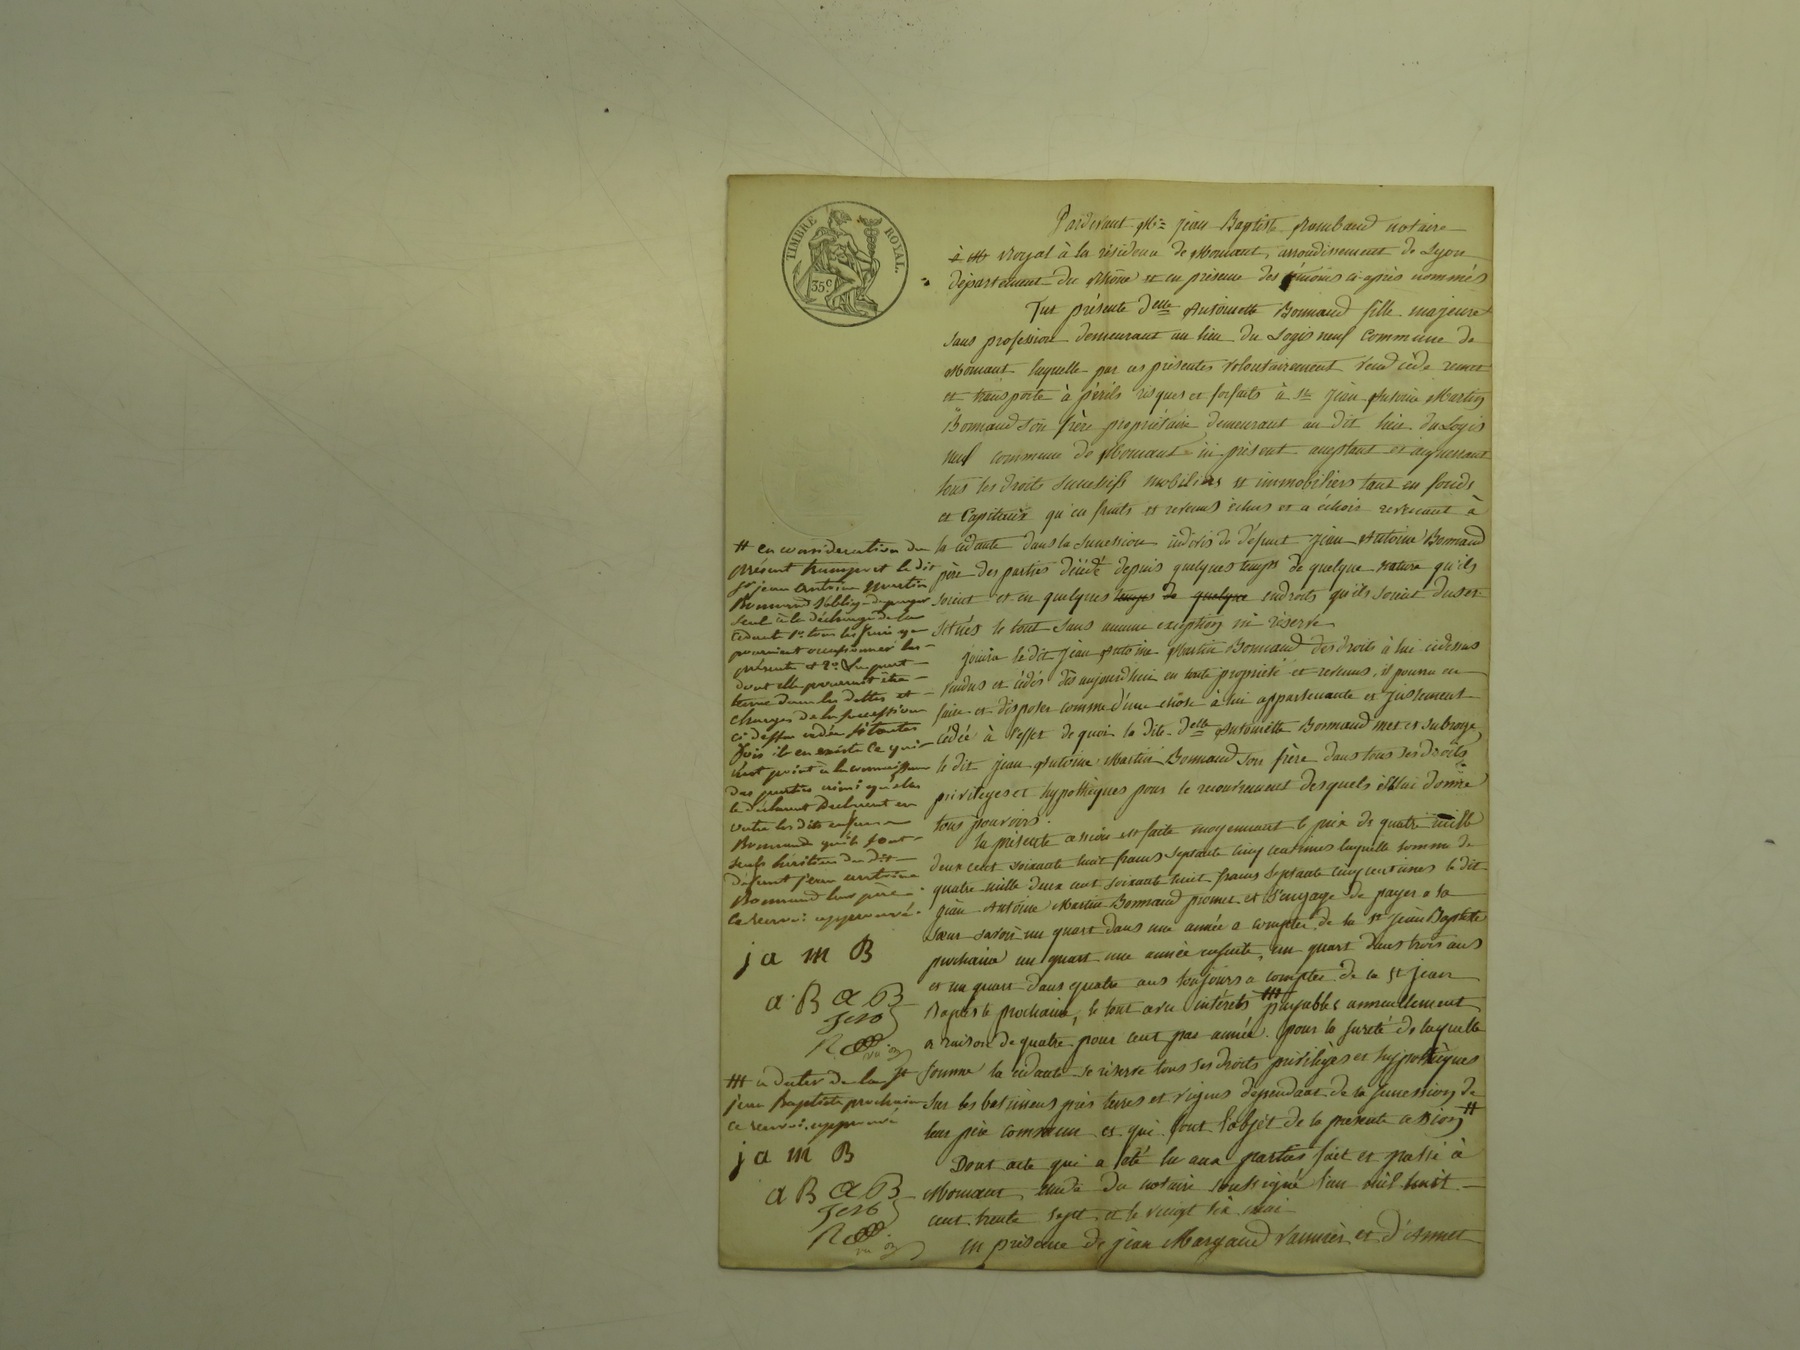 TIMBRE ROYAL.
35 c.
Pardevant Me Jean Baptiste Rambaud notaire
Royal à la résidence de Mornant, arrondissement de Lyon
département du Rhône et en présence des témoins ci-après nommés
Fut présente Delle Antoinette Bonnand fille majeure
sans profession demeurant au lieu du Logis neuf Commune de
Mornant laquelle par ces présentes volontairement vend cède remet
et transporte à périls risques et forfaits à sr Jean Antoine Martin
Bonnand son frère propriétaire demeurant au dit lieu du Logis
neuf commune de Mornant ici présent acceptant et acquérant
tous les droits successifs mobiliers et immobiliers tant en fonds
et Capitaux qu'en fruits et revenus échus et à échoir revenant à
la cédante dans la succession indivis de défunt Jean Antoine Bonnand
père des parties décédé depuis quelques temps de quelque nature qu'ils
soient et en quelques temps de quelque endroits qu'ils soient dus et
situés le tout sans aucune exception ni réserve
jouira le dit Jean Antoine Martin Bonnand des droits à lui cidessus
vendus et cédés dès aujourdhui en toute propriété et revenus, il pourra en
faire et disposer comme d'une chose à lui appartenante et justement
cédée à l'effet de quoi la dite Delle Antoinette Bonnand met et subroge
le dit jean Antoine Martin Bonnand son frère dans tous ses droits
privileges et hypothèques pour le recouvrement desquels elle lui donne
tous pouvoirs.
la présente cession est faite moyennant le prix de quatre mille
deux cent soixante huit francs septante cinq centimes laquelle somme de
quatre mille deux cent soixante huit francs septante cinq centimes le dit
Jean Antoine Martin Bonnand promet et s'engage de payer a sa
sœur savoir un quart dans une année a compter de la st Jean Baptiste
prochaine un quart une année ensuite, un quart dans trois ans
et un quart dans quatre ans toujours a compter de la st jean
Baptiste prochaine, le tout avec intérêts ### payables annuellement
a raison de quatre pour cent par année. pour la sureté de laquelle
somme la cédante se réserve tous ses droits privilèges et hypothèques
sur les batimens près terres et vignes dépendant de la succession de
leur père commun et qui font l'objet de la présente cession #
Dont acte qui a été lu aux parties fait et passé à
Mornant, étude du notaire soussigné l'an mil huit
cent trente sept et le vingt six mai
en présence de jean Margaud vannier et d'Annet
# en considération du
présent transport le dit
sr jean antoine martin
Bonnand s'oblige de payer
seul à la décharge de la
cédante 1° tous les frais que
pourraient occasionner les
présente et 2° la part
dont elle pourrait être
tenue dans les dettes et
charges de la succession
ci dessus cédée si toutes
fois il en existe ce qui
n'est point à la connaissance
des parties ainsi qu'elles
le déclarent Déclarent en
outre les dits enfans
Bonnand qu'ils sont
seuls héritiers du dit
défunt jean antoine
Bonnand leur père
ce renvoi approuvé.
j a m B
a B a B
### à dater de la st
jean Baptiste prochaine
ce renvoi approuvé
j a m B
a B a B